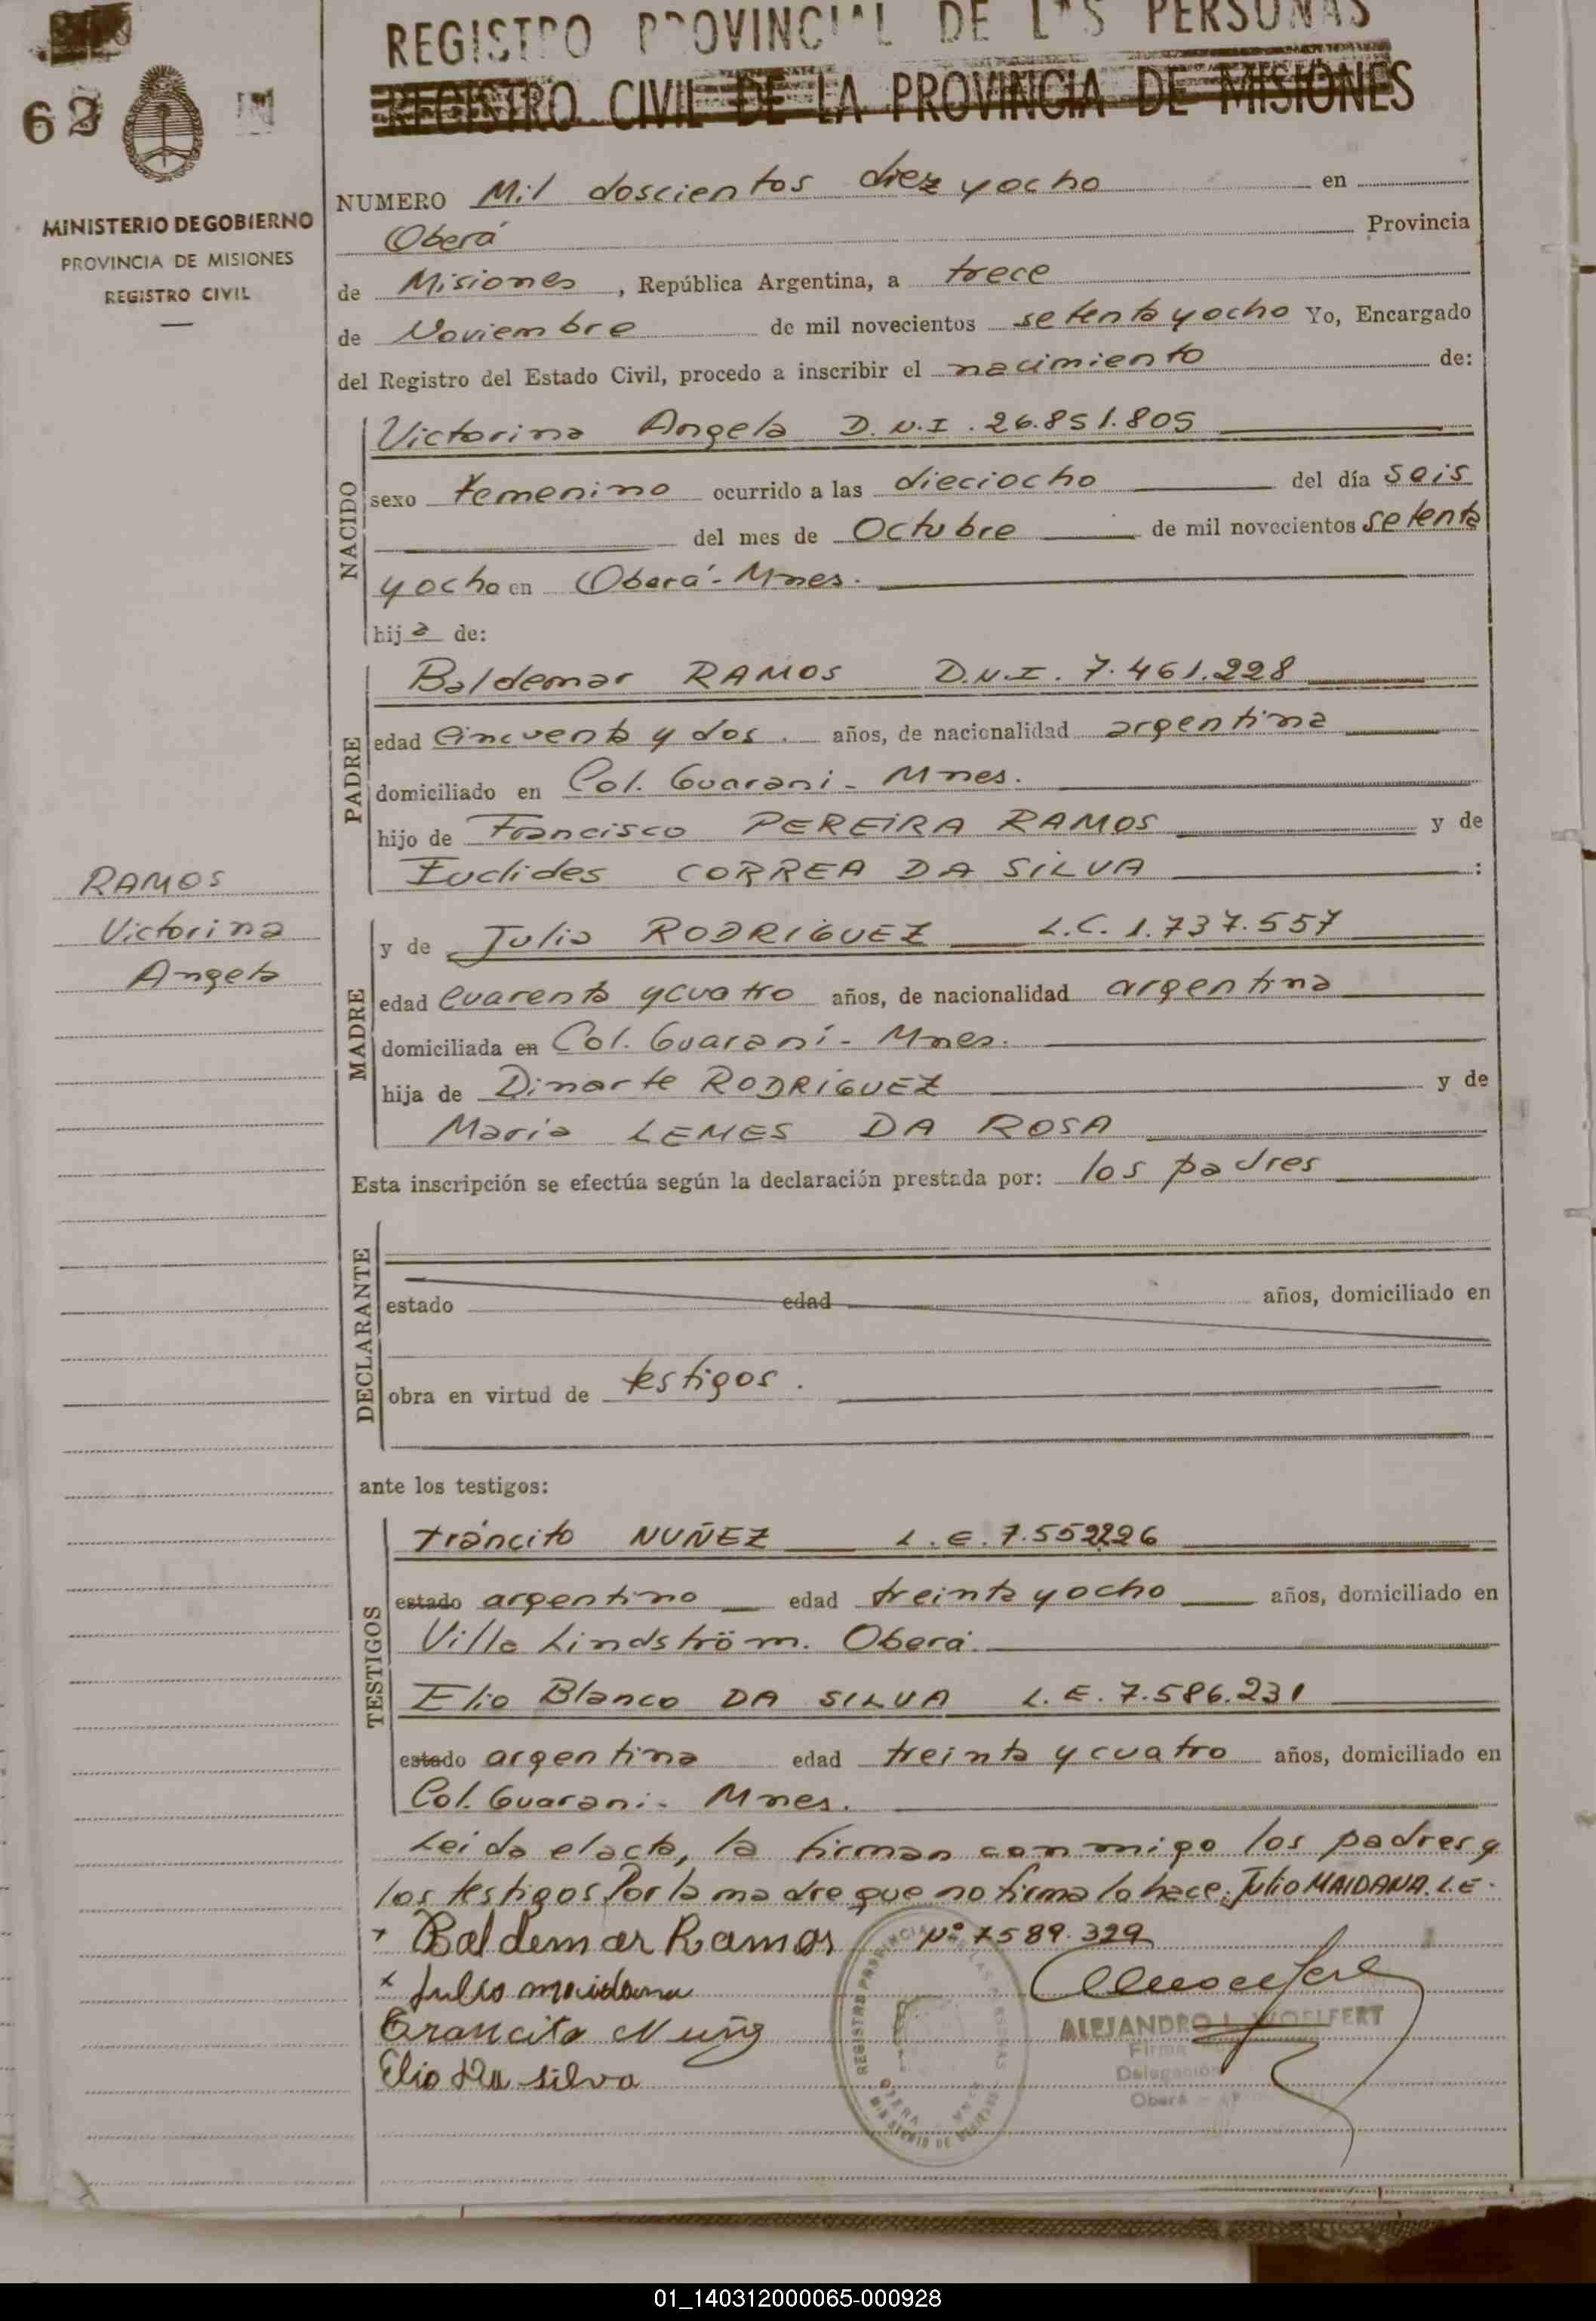 REGISTRO PROVINCIAL DE LAS PERSONAS
REGISTRO CIVIL DE LA PROVINCIA DE MISIONES
62
MINISTERIO DE GOBIERNO
PROVINCIA DE MISIONES
REGISTRO CIVIL
NUMERO Mil doscientos diez y ocho en
Oberá Provincia
de Misiones, República Argentina, a trece
de Noviembre de mil novecientos setenta y ocho Yo, Encargado
del Registro del Estado Civil, procedo a inscribir el nacimiento de:
NACIDO
Victorina Angela D.N.I. 26.851.805
sexo femenino ocurrido a las dieciocho del día seis
del mes de Octubre de mil novecientos setenta
y ocho en Oberá - Mnes.
hija de:
PADRE
Baldemar RAMOS D.N.I. 7.461.228
edad Cincuenta y dos. años, de nacionalidad argentina
domiciliado en Col. Guaraní - Mnes.
hijo de Francisco PEREIRA RAMOS y de
Euclides CORREA DA SILVA :
RAMOS
Victorina
Angela
MADRE
y de Julia RODRIGUEZ L.C. 1.737.557
edad Cuarenta y cuatro años, de nacionalidad argentina
domiciliada en Col. Guaraní - Mnes.
hija de Dinarte RODRÍGUEZ y de
María LEMES DA ROSA
Esta inscripción se efectúa según la declaración prestada por: los padres
DECLARANTE
estado edad años, domiciliado en
obra en virtud de testigos.
ante los testigos:
TESTIGOS
Tráncito NUÑEZ L.E. 7.552226
estado argentino edad treinta y ocho años, domiciliado en
Villa Lindström. Oberá.
Elio Blanco DA SILVA L.E. 7.586.231
estado argentina edad treinta y cuatro años, domiciliado en
Col. Guaraní - Mnes.
Leida el acta, la firman conmigo los padres y
los testigos. Por la madre que no firma lo hace: Julio MAIDANA. L.E.
Nº 7589.329
+ Baldemar Ramos
x Julio maidana
Trancito Nuñez
Elio Da silva
ALEJANDRO L. WOELFERT
Firma
Delegación
Oberá
REGISTRO PROVINCIAL DE LAS PERSONAS
OBERA MNES
MINISTERIO DE GOBIERNO
01_140312000065-000928